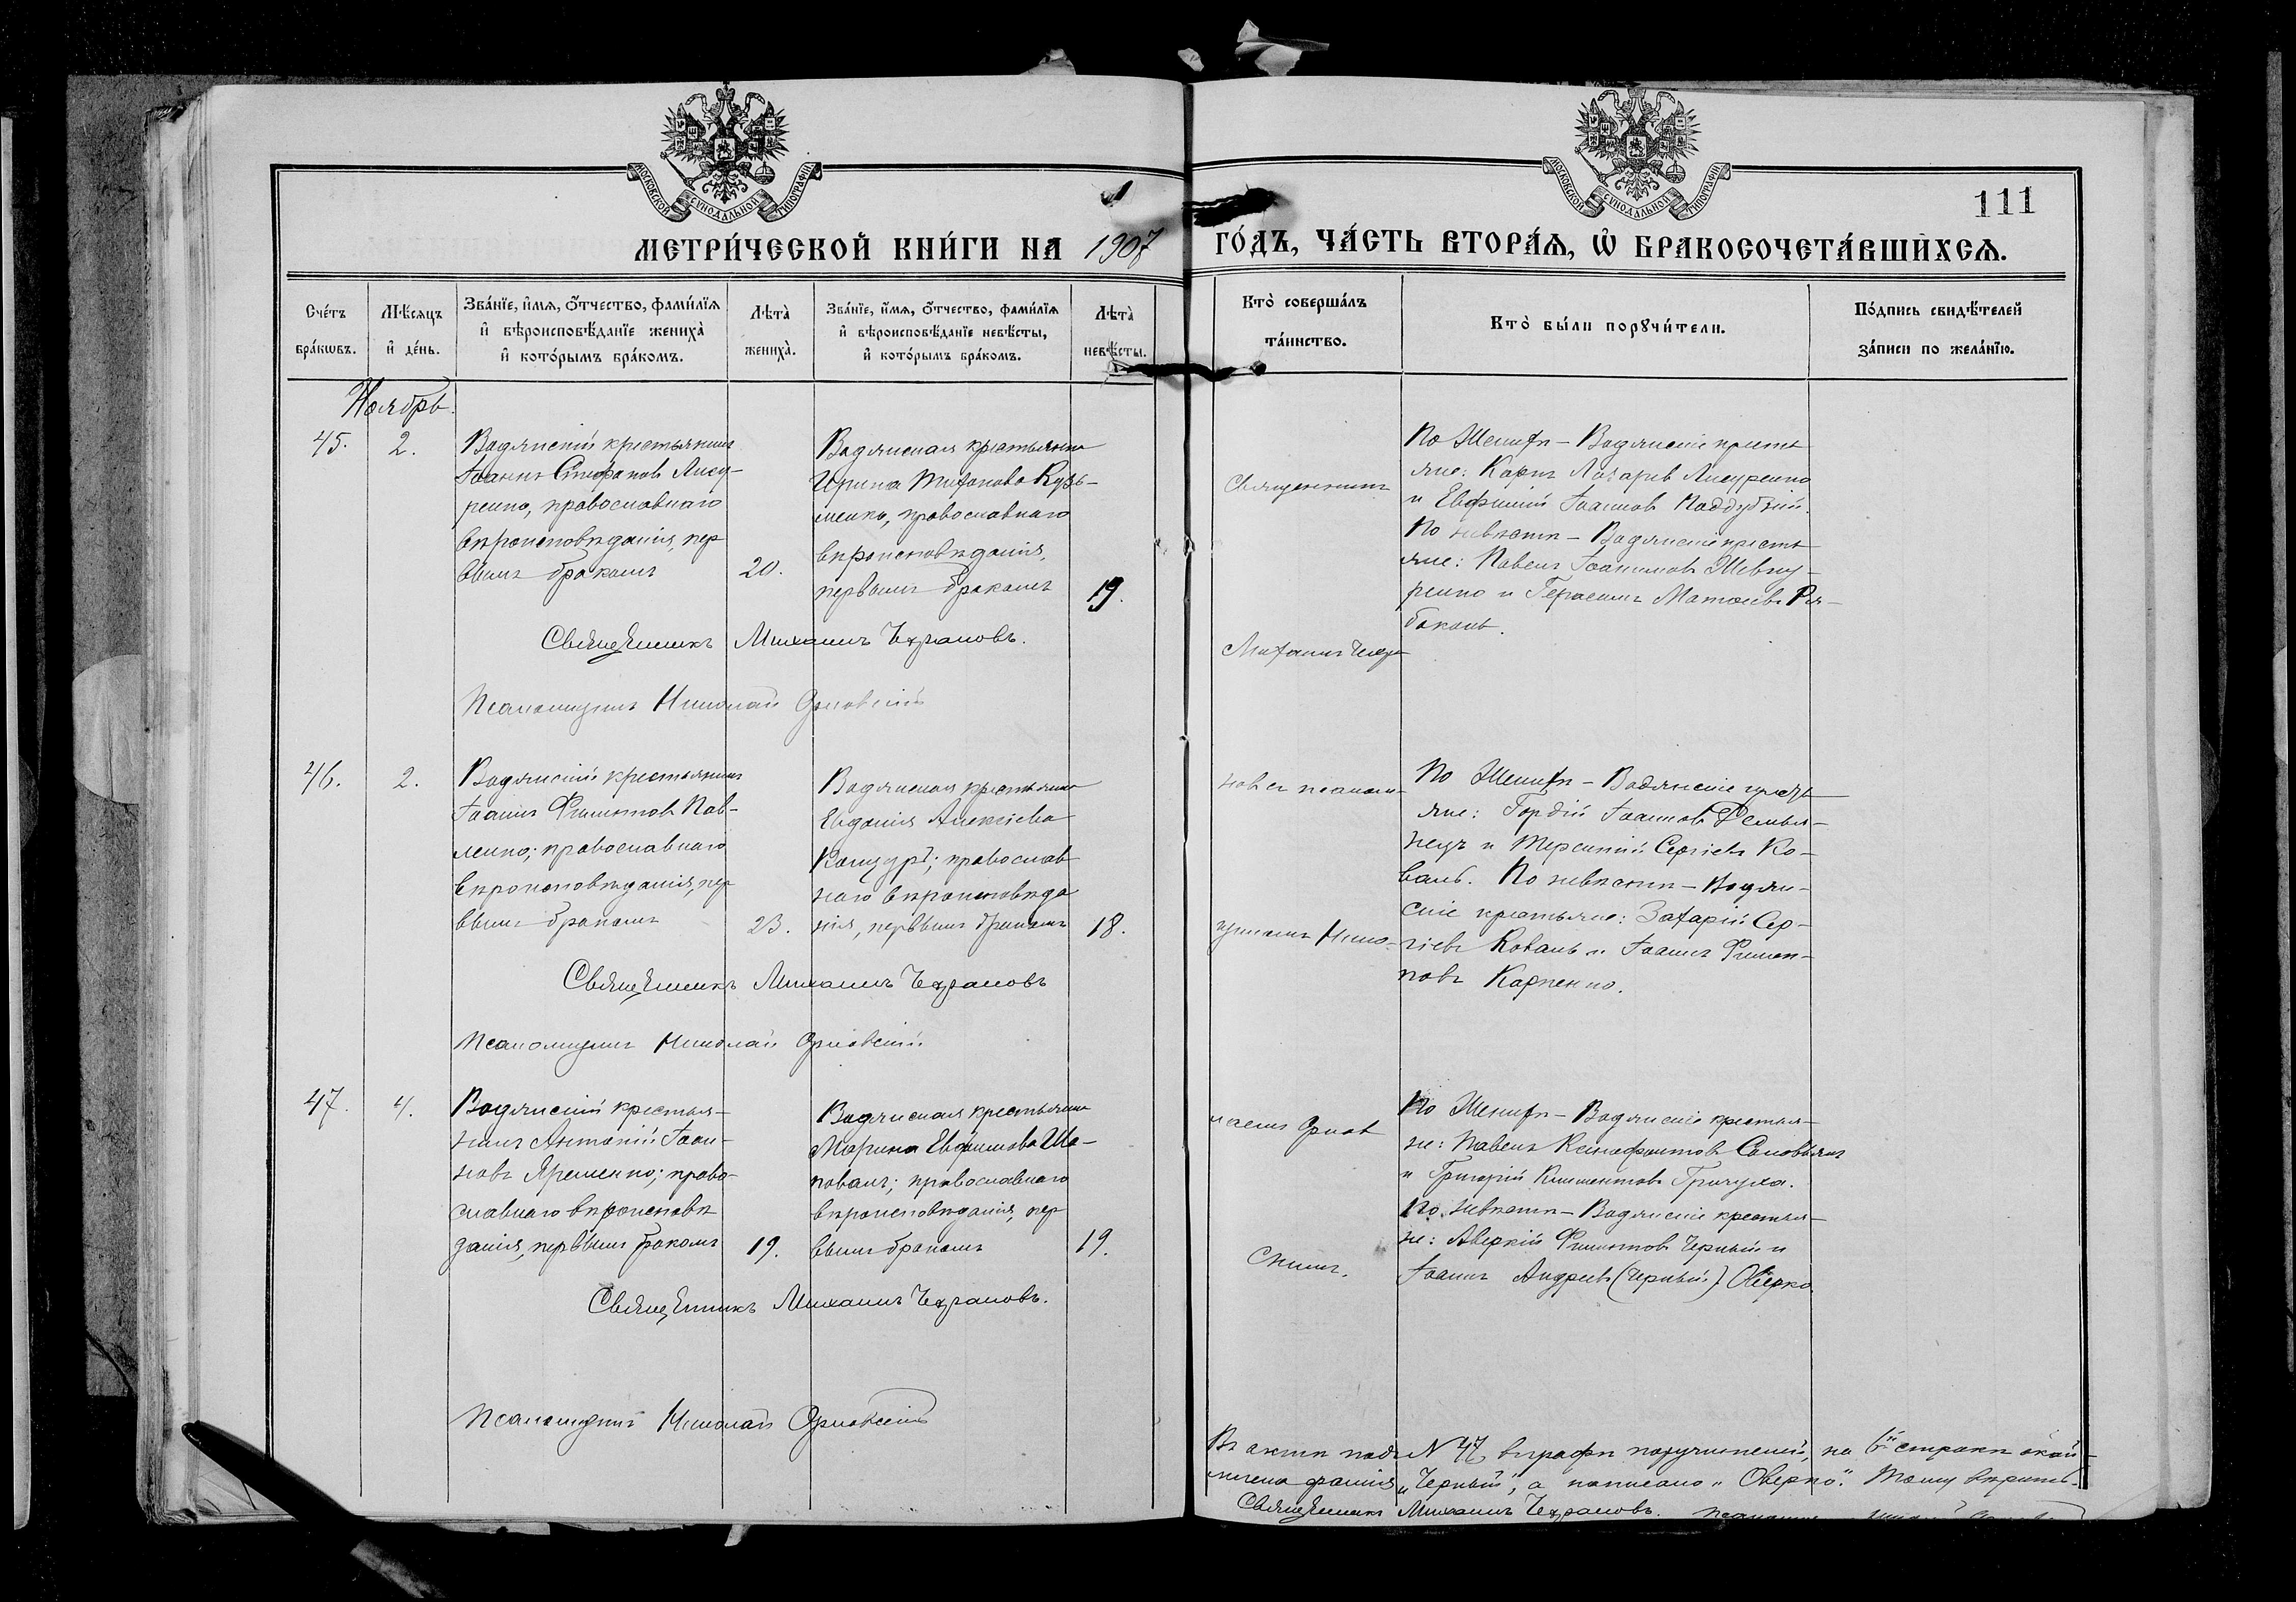 МОСКОВСКОЙ СѴНОДАЛЬНОЙ ТИПОГРАФІИ
МОСКОВСКОЙ СѴНОДАЛЬНОЙ ТИПОГРАФІИ
111
МЕТРИ́ЧЕСКОЙ КНИ́ГИ НА 1907 ГО́ДЪ, ЧА́СТЬ ВТОРА́Ѧ, Ѡ҆ БРАКОСОЧЕТА́ВШИХСѦ.
Сче́тъ бра́кѡвъ.
Мѣ́сяцъ и҆ де́нь.
Зва́нїе, и҆́мѧ, ѻ҆́тчество, фами́лїѧ
и҆ вѣроисповѣ́данїе жениха̀
и҆ кото́рымъ бра́комъ.
Лѣта̀ жениха̀.
Зва́нїе, и҆́мѧ, ѻ҆́тчество, фами́лїѧ
и҆ вѣроисповѣ́данїе невѣ́сты,
и҆ кото́рымъ бра́комъ.
Лѣта̀ невѣ́сты.
Кто̀ соверша́лъ
та́инство.
Кто̀ бы́ли порꙋчи́тели.
По́дпись свидѣ́телей
за́писи по жела́нїю.
Ноябрь.
45.
2.
Водянскій крестьянинъ
Іоаннъ Стефановъ Лису-
ренко, православнаго
вѣроисповѣданія, пер
вымъ бракомъ
20.
Водянская крестьянка
Ирина Тихонова Кузь-
менко, православнаго
вѣроисповѣданія,
первымъ бракомъ
19.
Священникъ
Михаилъ Чехра
По женихѣ – Водянскіе кресть
яне: Карпъ Лазаревъ Лисуренко
и Евфимій Іоанновъ Поддубный.
По невѣстѣ – Водянскіе кресть
яне: Павелъ Іоанновъ Шевчу-
ренко и Герасимъ Матѳіевъ Ря-
боконь.
Священникъ Михаилъ Чехрановъ.
Псаломщикъ Николай Орловскій
46.
2.
Водянскій крестьянинъ
Іоаннъ Филиповъ Пав-
ленко; православнаго
вѣроисповѣданія, пер
вымъ бракомъ
23.
Водянская крестьянка
Евдокія Алексіева
православ
наго вѣроисповѣда
нія, первымъ бракомъ
18.
новъ съ псалом-
щикомъ Нико-
По женихѣ – Водянскіе кресть
яне: Гордій Іоанновъ Демья-
нецъ и Терентій Сергіевъ Ко-
валь. По невѣстѣ – Водян-
скіе крестьяне: Захарій Сер-
гіевъ Коваль и Іоаннъ Филип-
повъ Карпенко.
Священникъ Михаилъ Чехрановъ
Псаломщикъ Николай Орловскій
47.
4.
Водянскій крестья-
нинъ Антоній Іоан-
новъ Яременко; право-
славнаго вѣроисповѣ
данія, первымъ бракомъ
19.
Водянская крестьянка
Марина Евфимова Ша-
повалъ; православнаго
вѣроисповѣданія, пер
вымъ бракомъ
19.
лаемъ Орлов
скимъ.
По женихѣ – Водянскіе крестья-
не: Павелъ Ксенофонтовъ Соловьянъ
и Григорій Климентовъ Гричуха.
По невѣстѣ – Водянскіе крестья-
не: Аверкій Филиповъ Черный и
Іоаннъ Андреевъ (Черный) Оверко.
Священникъ Михаилъ Чехрановъ.
Псаломщикъ Николай Орловскій
Въ актѣ подъ №47, въ графѣ поручителей, на 6й строкѣ окай-
млена фамилія „Черный“, а написано „Оверко“. Тому вѣрить.
Священникъ Михаилъ Чехрановъ.